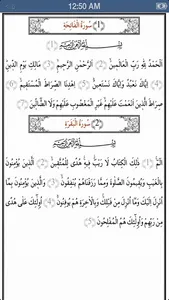 12:50 AM
(1) سُورَةُ الْفَاتِحَةِ
بِسْمِ اللَّهِ الرَّحْمَٰنِ الرَّحِيمِ
الْحَمْدُ لِلَّهِ رَبِّ الْعَالَمِينَ ﴿٢﴾ الرَّحْمَٰنِ الرَّحِيمِ ﴿٣﴾ مَالِكِ يَوْمِ الدِّينِ
﴿٤﴾ إِيَّاكَ نَعْبُدُ وَإِيَّاكَ نَسْتَعِينُ ﴿٥﴾ اهْدِنَا الصِّرَاطَ الْمُسْتَقِيمَ ﴿٦﴾
صِرَاطَ الَّذِينَ أَنْعَمْتَ عَلَيْهِمْ غَيْرِ الْمَغْضُوبِ عَلَيْهِمْ وَلَا الضَّالِّينَ ﴿٧﴾
(2) سُورَةُ الْبَقَرَةِ
بِسْمِ اللَّهِ الرَّحْمَٰنِ الرَّحِيمِ
الم ﴿١﴾ ذَٰلِكَ الْكِتَابُ لَا رَيْبَ فِيهِ هُدًى لِلْمُتَّقِينَ ﴿٢﴾ الَّذِينَ يُؤْمِنُونَ
بِالْغَيْبِ وَيُقِيمُونَ الصَّلَاةَ وَمِمَّا رَزَقْنَاهُمْ يُنْفِقُونَ ﴿٣﴾ وَالَّذِينَ يُؤْمِنُونَ بِمَا
أُنْزِلَ إِلَيْكَ وَمَا أُنْزِلَ مِنْ قَبْلِكَ وَبِالْآخِرَةِ هُمْ يُوقِنُونَ ﴿٤﴾ أُولَٰئِكَ عَلَىٰ هُدًى
مِنْ رَبِّهِمْ وَأُولَٰئِكَ هُمُ الْمُفْلِحُونَ ﴿٥﴾